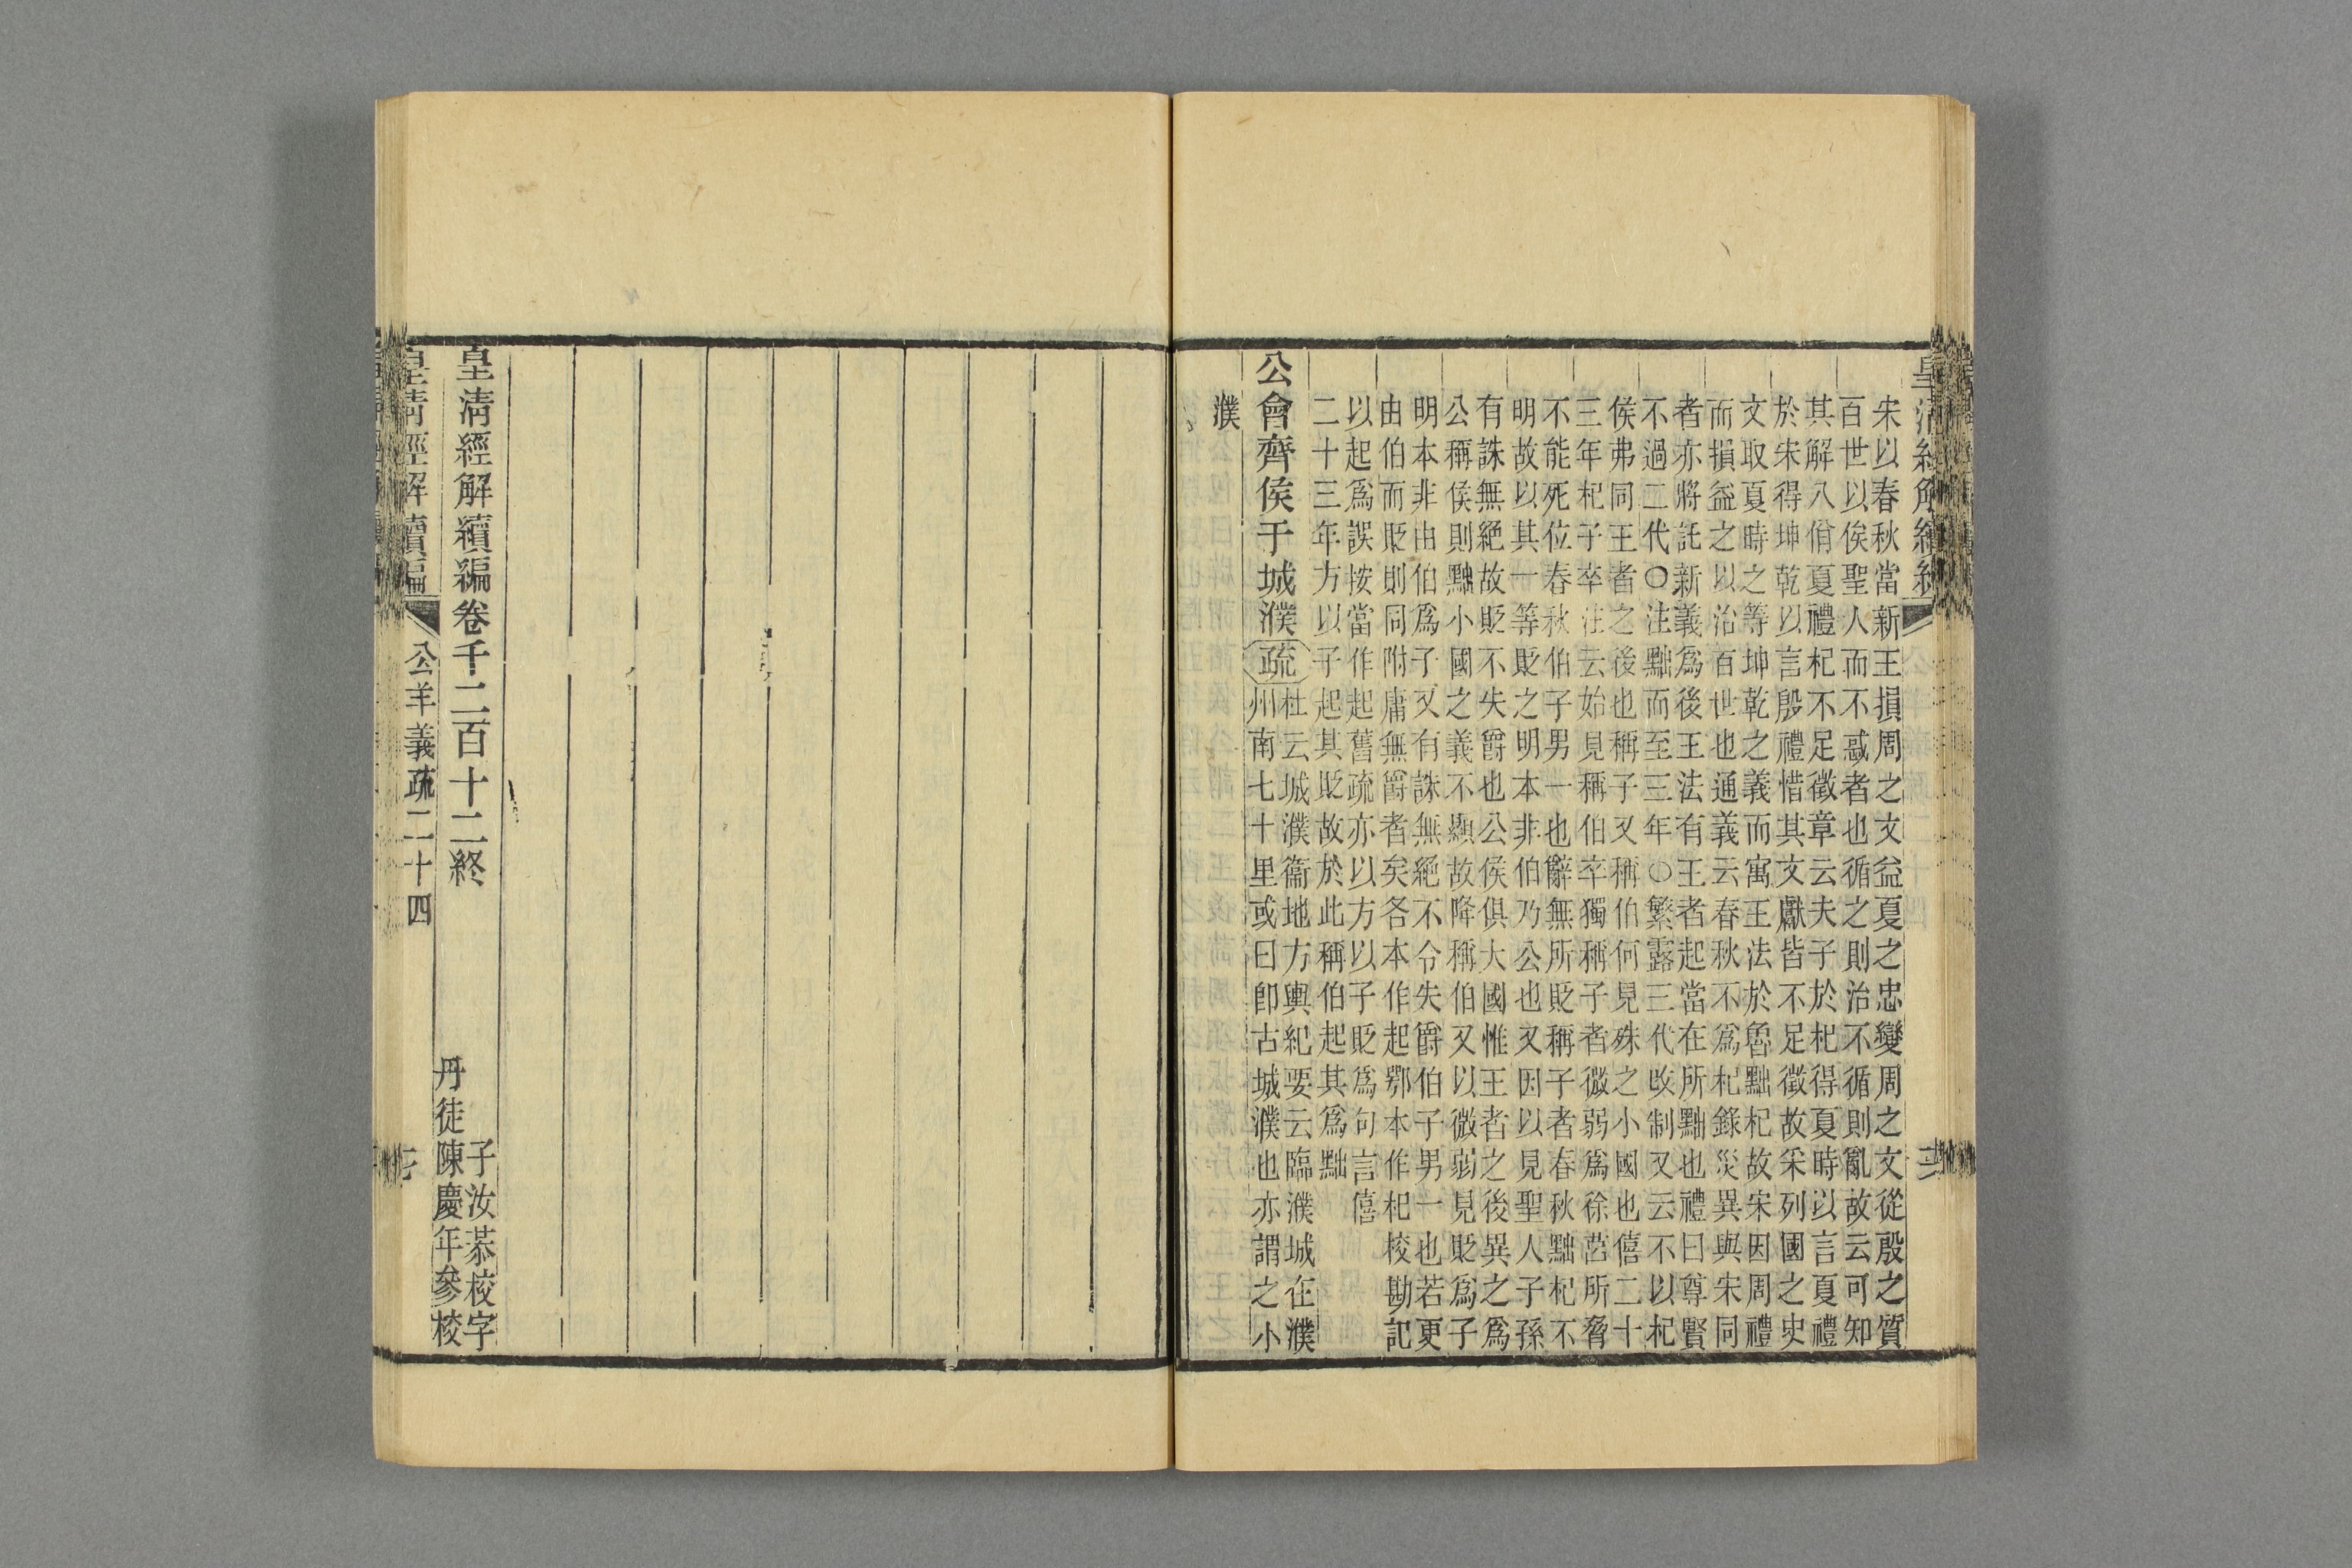 宋以春秋當新王損周之文益夏之忠變周之文從殷之質
百世以俟聖人而不惑者也循之則治不循則亂故云可知
其解八佾夏禮杞不足徵章云夫子於杞得夏時以言夏禮
於宋得坤乾以言殷禮惜其文獻皆不足徵故采列國之史
文取夏時之等坤乾之義而寓王法於魯黜杞故宋因周禮
而損益之以治百世也通義云春秋不爲杞錄災異與宋同
者亦將託新義爲後王法有王者起當在所黜也禮曰尊賢
不過二代〇注黜而至三年〇繁露三代改制又云不以杞
侯弗同王者之後也稱子又稱伯何見殊之小國也僖二十
三年杞子卒注云始見稱伯卒獨稱子者微弱爲徐莒所脅
不能死位春秋伯子男一也辭無所貶稱子者春秋黜杞不
明故以其一等貶之明本非伯乃公也又因以見聖人子孫
有誅無絕故貶不失爵也公侯俱大國惟王者之後異之爲
公稱侯則黜小國之義不顯故降稱伯又以微弱見貶爲子
明本非由伯爲子又有誅無絕不令失爵伯子男一也若更
由伯而貶則同附庸無爵者矣各本作起鄂本作杞校勘記
以起爲誤按當作起舊疏亦以方以子貶爲句言僖
二十三年方以子起其貶故於此稱伯起其爲黜
公會齊侯于城濮疏杜云城濮衞地方輿紀要云臨濮城在濮
州南七十里或曰卽古城濮也亦謂之小
濮
皇清經解續編卷千二百十二終
子汝恭校字
丹徒陳慶年參校
皇清經解續編
公羊義疏二十四